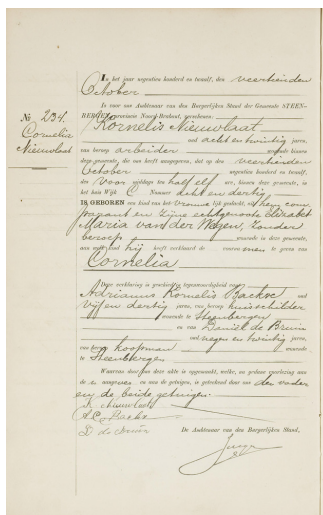 In het jaar negentien honderd en twaalf, den veertienden
October
is voor ons Ambtenaar van den Burgerlijken Stand der Gemeente STEEN-
BERGEN, provincie Noord-Brabant, verschenen:
No 234.
Cornelia
Nieuwlaat
Kornelis Nieuwlaat
oud acht en twintig jaren,
van beroep arbeider wonende binnen
deze gemeente, die ons heeft aangegeven, dat op den veertienden
October negentien honderd en twaalf,
des voor middags ten half elf ure, binnen deze gemeente, in
het huis Wijk C Nummer acht en dertig
IS GEBOREN een kind van het vrouwelijk geslacht, uit hem com-
parant en zijne echtgenoote Elizabet
Maria van der Wegen, zonder
beroep wonende in deze gemeente,
aan welk kind hij heeft verklaard de voornamen te geven van
Cornelia
Deze verklaring is geschied in tegenwoordigheid van
Adrianus Kornelis Backx oud
vijf en dertig jaren, van beroep huisschilder
wonende te Steenbergen
en van Daniël de Bruin
oud negen en twintig jaren,
van beroep koopman wonende
te Steenbergen
Waarvan door ons deze akte is opgemaakt, welke, na gedane voorlezing aan
de aangever en aan de getuigen, is geteekend door ons den vader
en de beide getuigen.
K Nieuwlaat
A.C. Backx
D de Bruin
De Ambtenaar van den Burgerlijken Stand,